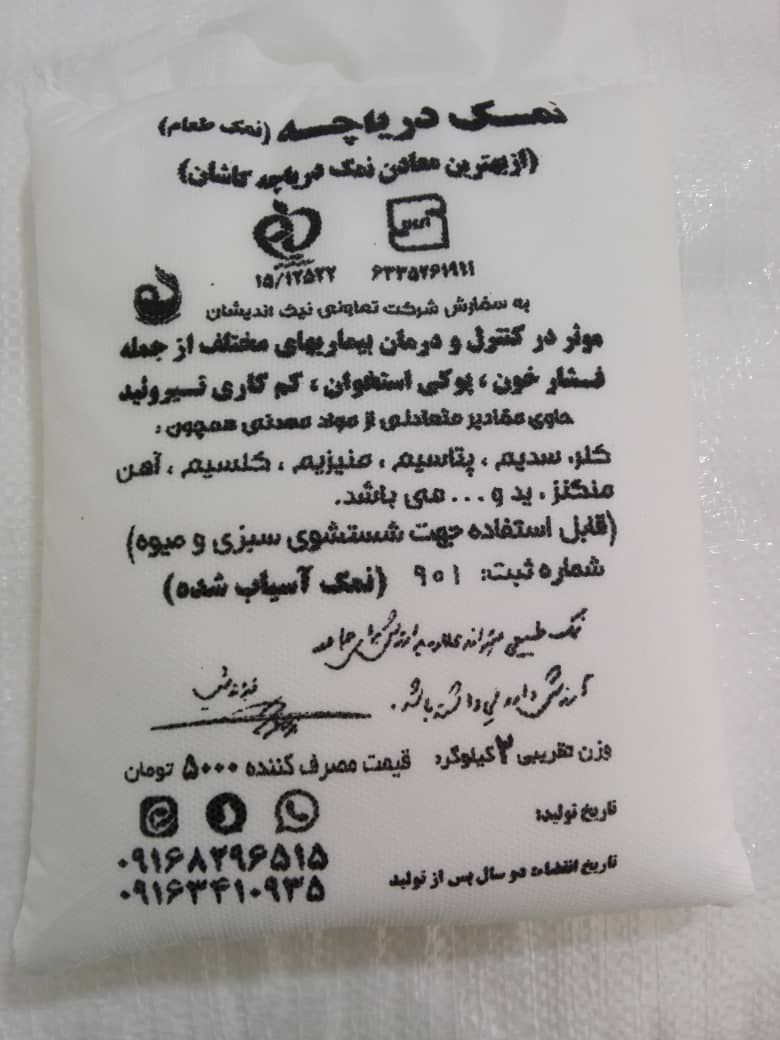 نمک دریاچه (نمک طعام)
(از بهترین معادن نمک دریاچه کاشان)
۶۳۳۵۲۶۱۹۱۱
۱۵/۱۲۵۲۲
به سفارش شرکت تعاونی نیک اندیشان
موثر در کنترل و درمان بیماریهای مختلف از جمله
فشار خون ، پوکی استخوان ، کم کاری تیروئید
حاوی مقادیر متعادلی از مواد معدنی همچون :
کلر، سدیم ، پتاسیم ، منیزیم ، کلسیم ، آهن
منگنز ، ید و ... می باشد.
(قابل استفاده جهت شستشوی سبزی و میوه)
شماره ثبت: ۹۰۱ (نمک آسیاب شده)
نمک طبیعی میتواند علاوه بر ارزش
ارزش دارویی داشته باشد.
وزن تقریبی ۲ کیلوگرم قیمت مصرف کننده ۵۰۰۰ تومان
تاریخ تولید:
تاریخ انقضاء: دو سال پس از تولید
۰۹۱۶۸۲۹۶۵۱۵
۰۹۱۶۳۴۱۰۹۳۵